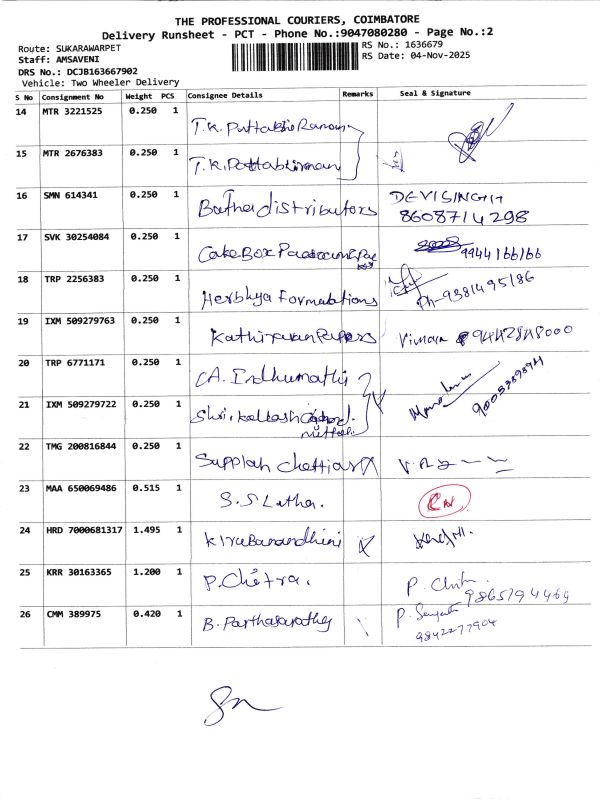 THE PROFESSIONAL COURIERS, COIMBATORE
Delivery Runsheet - PCT - Phone No.:9047080280 - Page No.:2
Route: SUKARAWARPET
RS No.: 1636679
Staff: AMSAVENI
RS Date: 04-Nov-2025
DRS No.: DCJB163667902
Vehicle: Two Wheeler Delivery
S No Consignment No Weight PCS Consignee Details Remarks Seal & Signature
14 MTR 3221525 0.250 1 T.K.
15 MTR 2676383 0.250 1 T.K.
16 SMN 614341 0.250 1 distributors DEVISINGH
8608714298
17 SVK 30254084 0.250 1 CakeBox 9944166166
18 TRP 2256383 0.250 1 Herbhya Formulations Ph-9381495186
19 IXM 509279763 0.250 1 Kathiravan Papers 9442848000
20 TRP 6771171 0.250 1 CA. Indhumathi
21 IXM 509279722 0.250 1 Shri. kailash
22 TMG 200816844 0.250 1 Suppiah Chettiar
23 MAA 650069486 0.515 1 S.S Latha.
24 HRD 7000681317 1.495 1 Kirubanandhini
25 KRR 30163365 1.200 1 P. Chitra. P. Chitra
9865794469
26 CMM 389975 0.420 1 B. Parthasarathy P.
9842277904